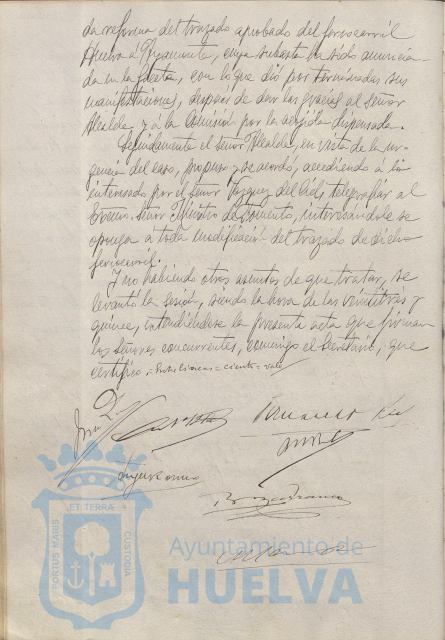 da reforma del trazado aprobado del ferrocarril
Huelva á Ayamonte, cuya subasta ha sido anuncia-
da en la Gaceta, con lo que dió por terminadas sus
manifestaciones, despues de dar las gracias al señor
Alcalde y á la Comisión por la acogida dispensada.
Seguidamente el señor Alcalde, en vista de la ur-
gencia del caso, propuso y se acordó, accediendo á lo
interesado por el señor Vazquez del Cid, telegrafiar al
Excmo. Señor Ministro de Fomento, interesándole se
oponga a toda modificación del trazado de dicho
ferrocarril.
Y no habiendo otros asuntos de que tratar, se
levantó la sesión, siendo la hora de las veintitrés y
quince, extendiéndose la presente acta que firman
los señores concurrentes, conmigo el Secretario, que
certifico
PORTUS MARIS ET TERRAE CUSTODIA
Ayuntamiento de
HUELVA